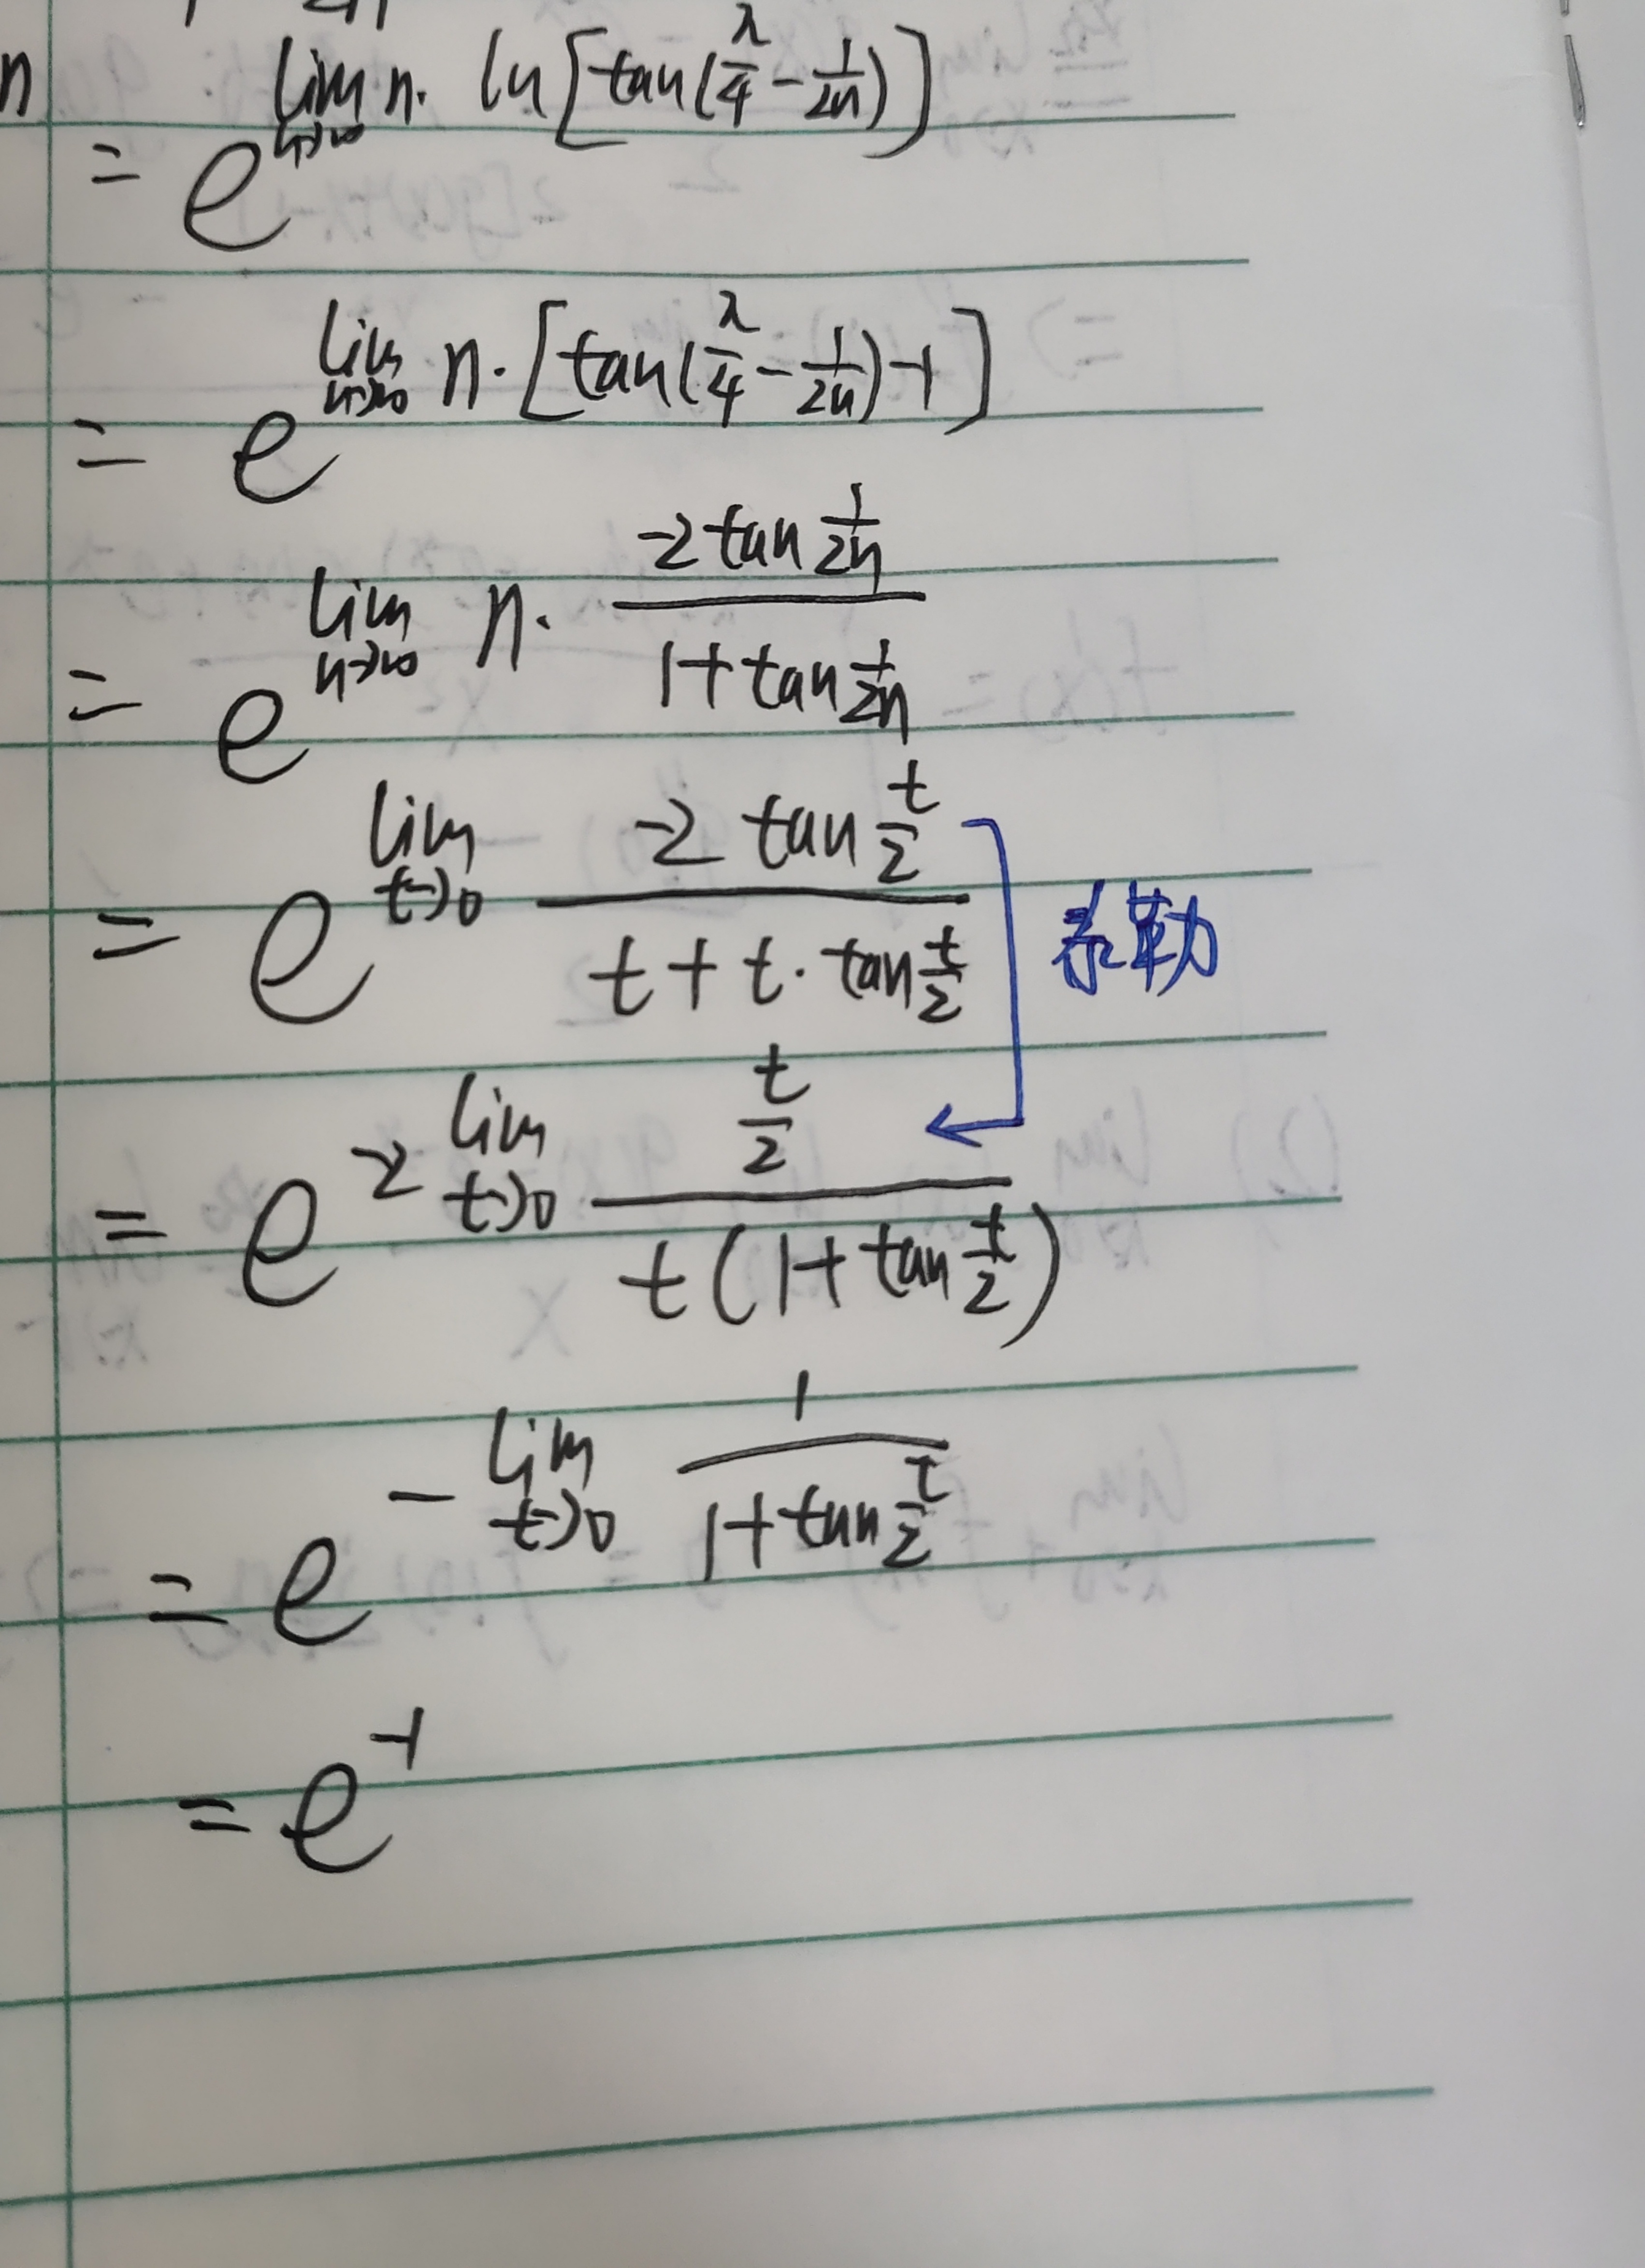 n
= e^{lim_{n→∞} n· ln[tan(π/4 - 1/2n)]}
= e^{lim_{n→∞} n·[tan(π/4 - 1/2n) -1]}
= e^{lim_{n→∞} n· (-2 tan 1/2n)/(1+ tan 1/2n)}
= e^{lim_{t→0} (-2 tan t/2)/(t + t· tan t/2)}
泰勒
= e^{-2 lim_{t→0} (t/2)/(t(1+ tan t/2))}
= e^{- lim_{t→0} 1/(1+ tan t/2)}
= e^{-1}